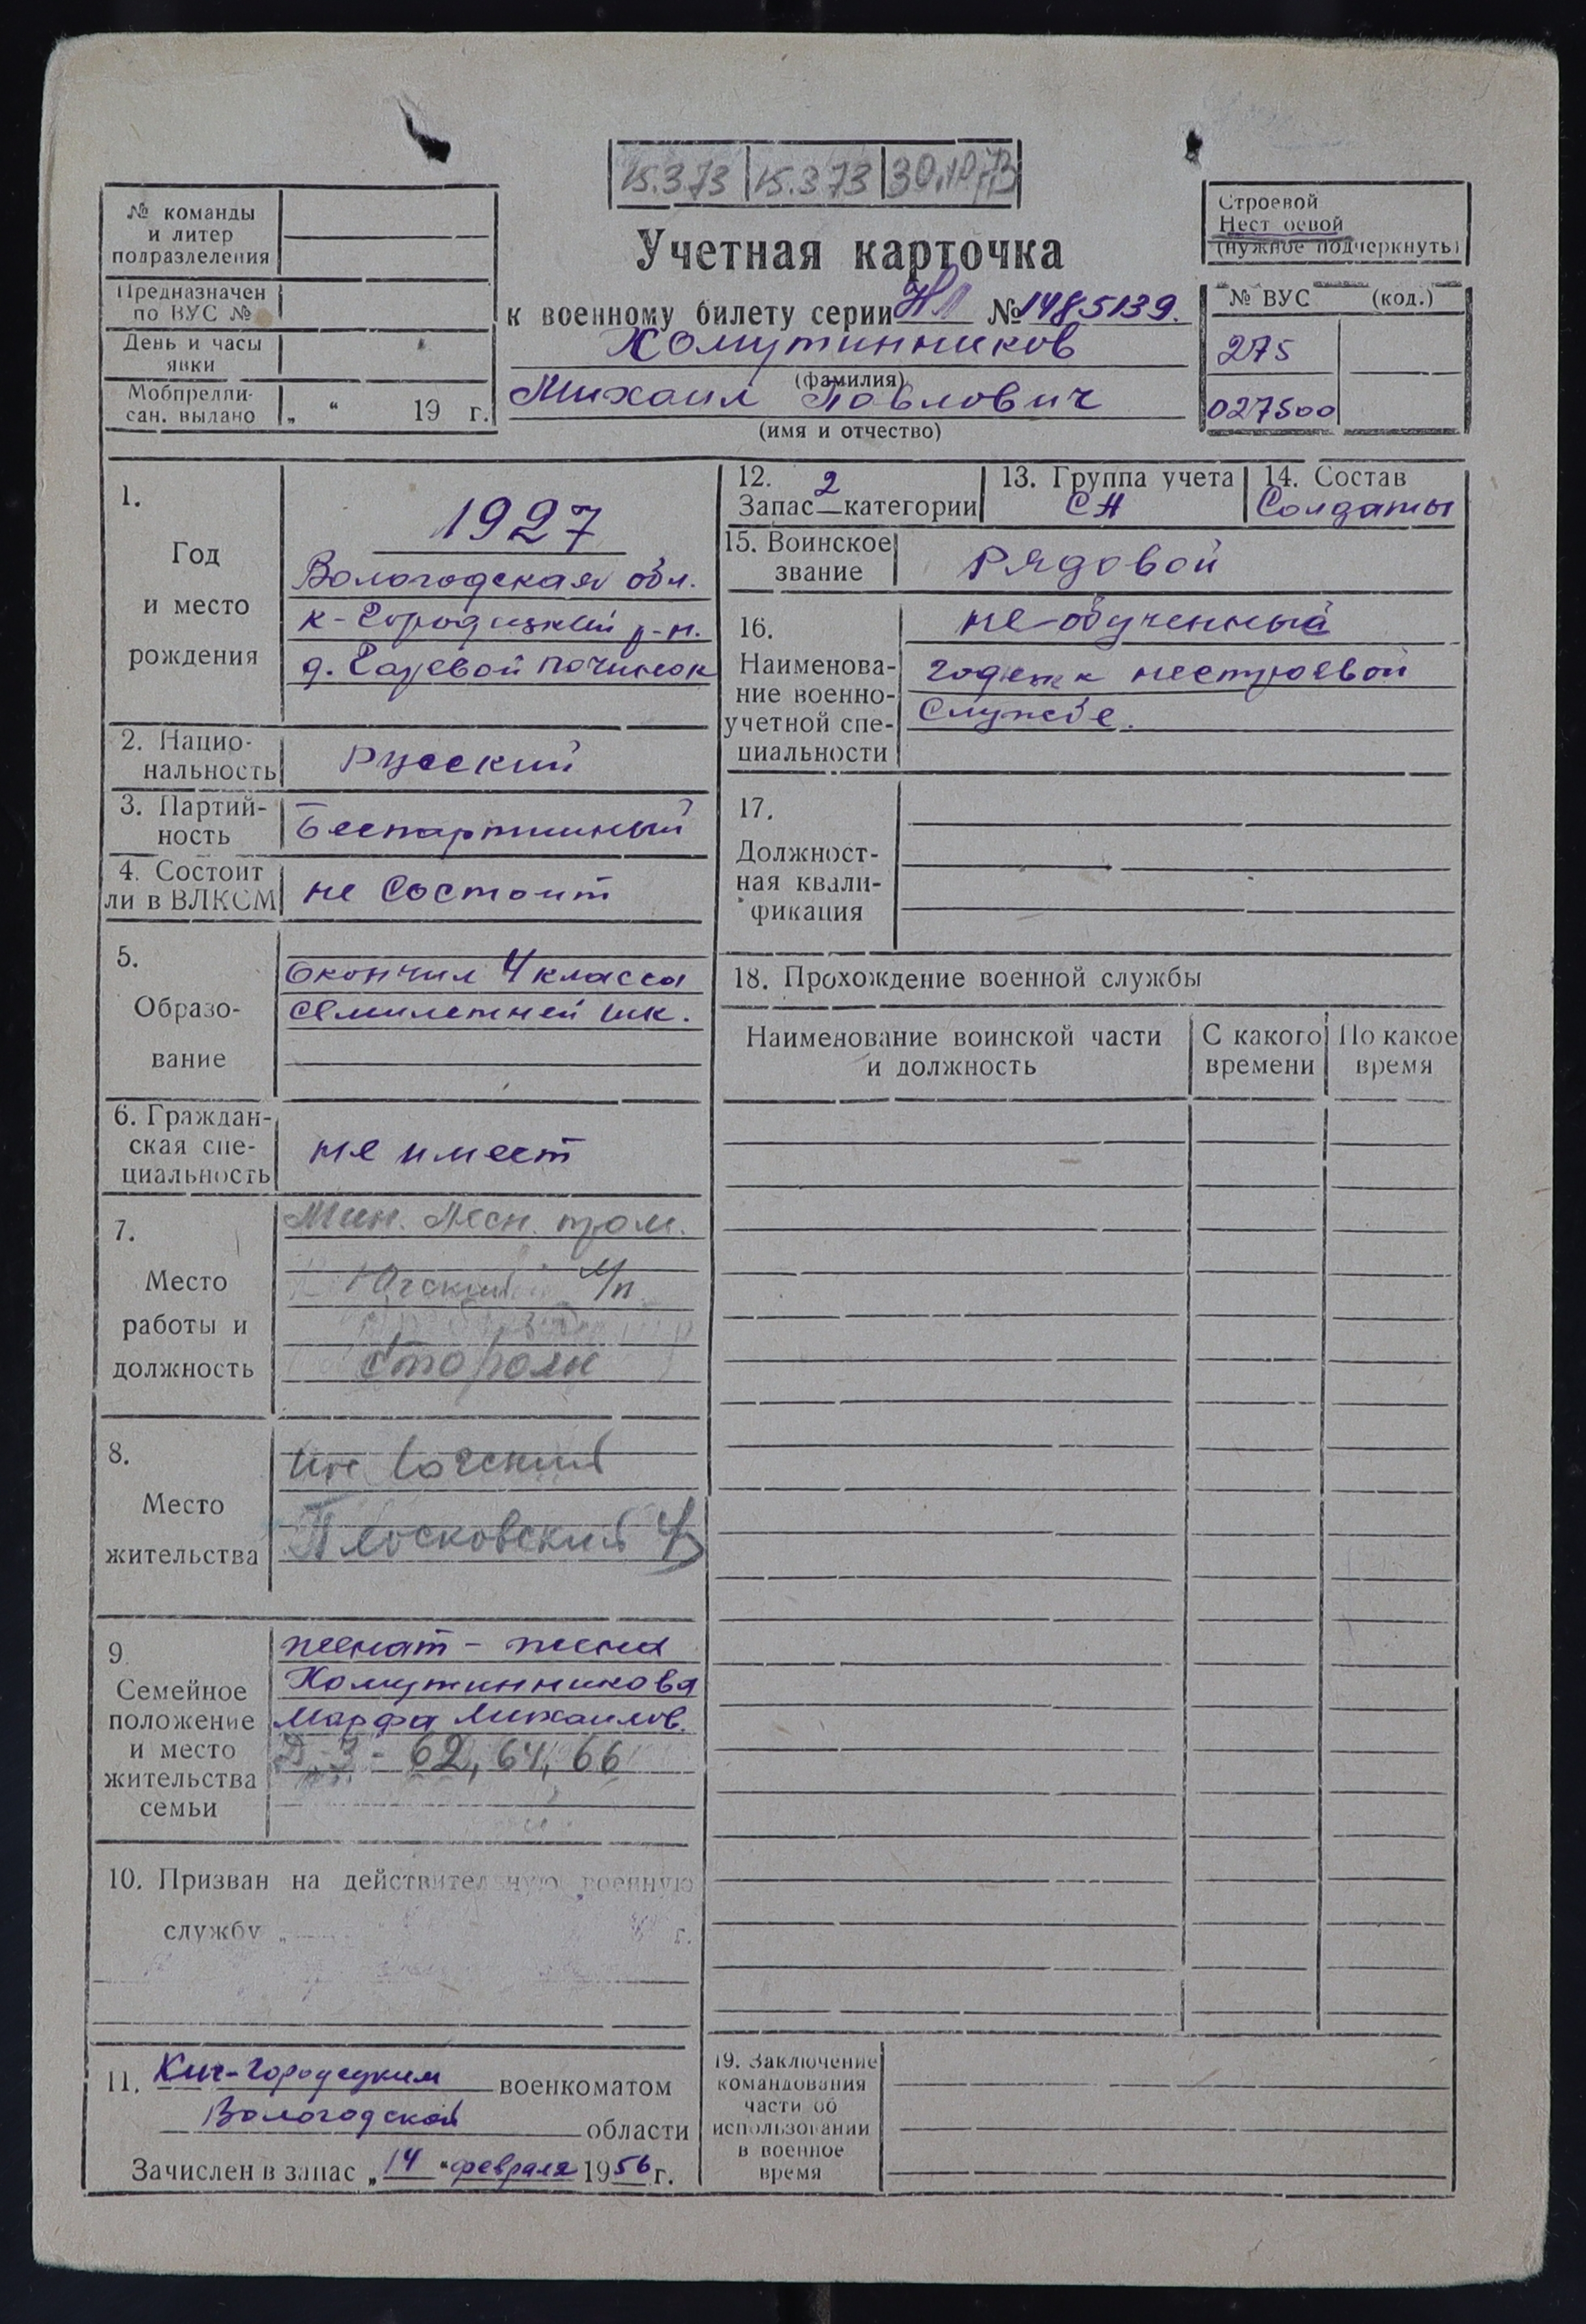 15.3.73 15.3.73 30.10.73
№ команды
и литер
подразделения
Предназначен
по ВУС №
День и часы
явки
Мобпредпи-
сан. выдано „ “ 19 г.
Учетная карточка
к военному билету серии НЛ № 1485139.
Хомутинников
(фамилия)
Михаил Павлович
(имя и отчество)
Строевой
Нестроевой
(нужное подчеркнуть)
№ ВУС (код.)
275
027500
1.
Год
и место
рождения
1927
Вологодская обл.
К-Городецкий р-н.
д. Гаревой починок
2. Нацио-
нальность
Русский
3. Партий-
ность
Беспартийный
4. Состоит
ли в ВЛКСМ
не состоит
5.
Образо-
вание
Окончил 4 класса
семилетней шк.
6. Граждан-
ская спе-
циальность
не имеет
7.
Место
работы и
должность
Мин. Лесн. пром.
Югский л/п
сторож
8.
Место
жительства
Югский
Плосковский
9.
Семейное
положение
и место
жительства
семьи
женат - жена
Хомутинникова
Марфа Михайлов.
Д-3- 62, 64, 66
10. Призван на действительную военную
службу „ г.
11. Кич-Городецким военкоматом
Вологодской области
Зачислен в запас „14“ февраля 1956 г.
12. 2
Запас — категории
13. Группа учета
СА
14. Состав
Солдаты
15. Воинское
звание
Рядовой
16.
Наименова-
ние военно-
учетной спе-
циальности
не обученный
годен к нестроевой
службе.
17.
Должност-
ная квали-
фикация
18. Прохождение военной службы
Наименование воинской части
и должность
С какого
времени
По какое
время
19. Заключение
командования
части об
использовании
в военное
время